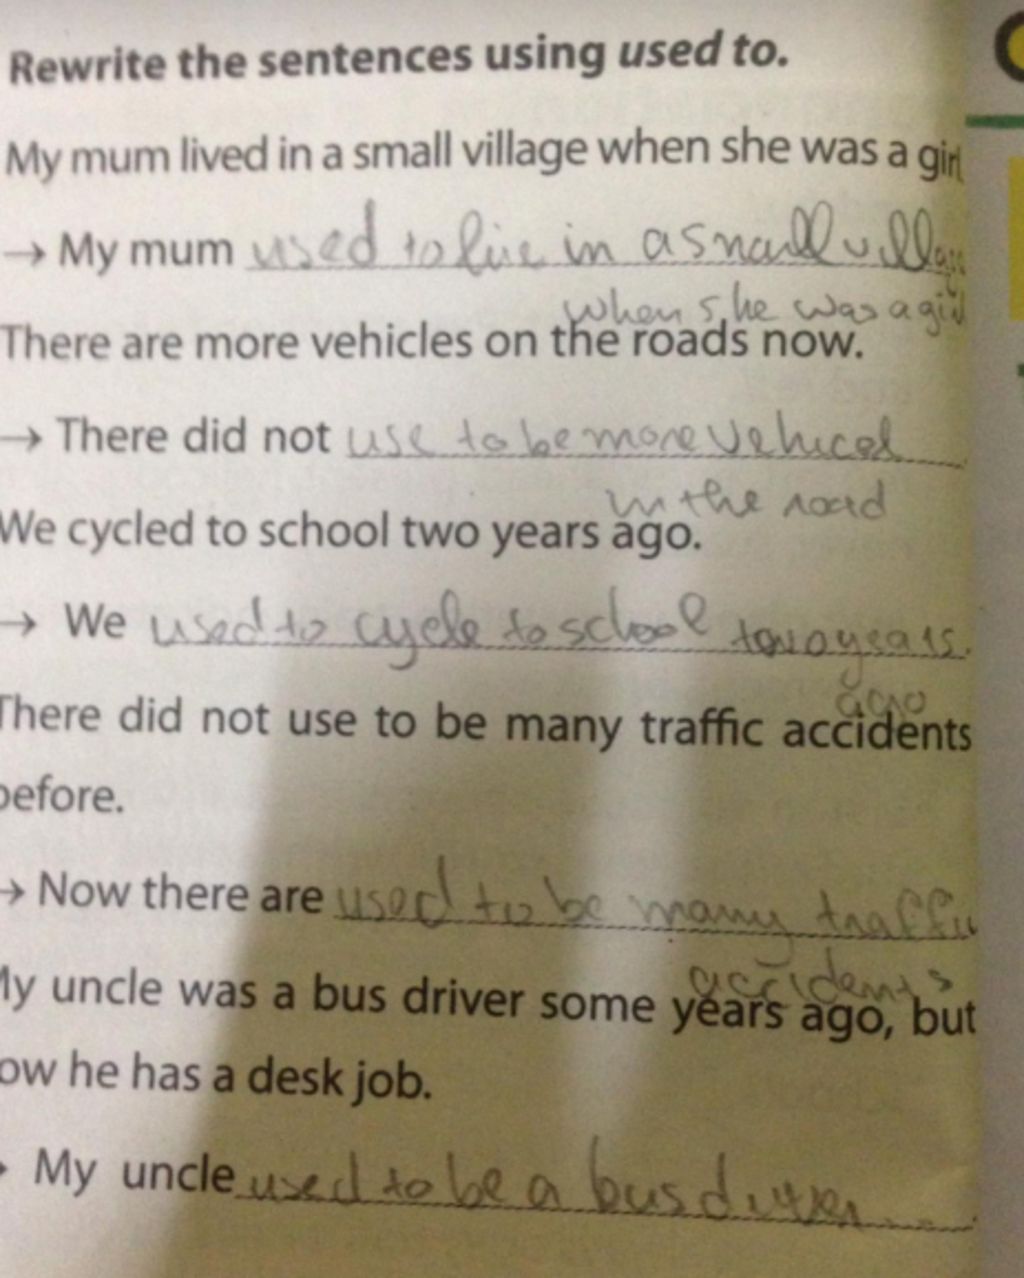 Rewrite the sentences using used to.
My mum lived in a small village when she was a girl
→ My mum used to live in a small village
when she was a girl
There are more vehicles on the roads now.
→ There did not use to be more vehicel
in the road
We cycled to school two years ago.
→ We used to cycle to school two years.
ago
There did not use to be many traffic accidents
before.
→ Now there are used to be many traffic
accidents
My uncle was a bus driver some years ago, but
ow he has a desk job.
My uncle used to be a bus driver